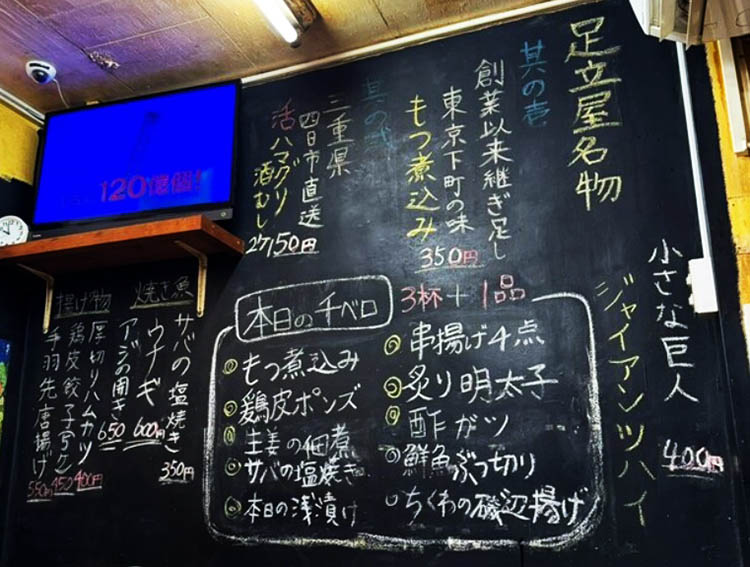 足立屋名物
其の壱
創業以来継ぎ足し
東京下町の味
もつ煮込み
350円
其の弐
三重県
四日市直送
活ハマグリ
酒むし
2ケ150円
小さな巨人
ジャイアンツハイ
400円
本日のチベロ
3杯+1品
もつ煮込み
鶏皮ポンズ
生姜の佃煮
サバの塩焼き
本日の浅漬け
串揚げ4点
炙り明太子
酢ガツ
鮮魚ぶつ切り
ちくわの磯辺揚げ
焼き魚
サバの塩焼き
350円
ウナギ
600円
アジの開き
650
揚げ物
厚切りハムカツ
400円
鶏皮餃子
450円
手羽先唐揚げ
550円
120億個!